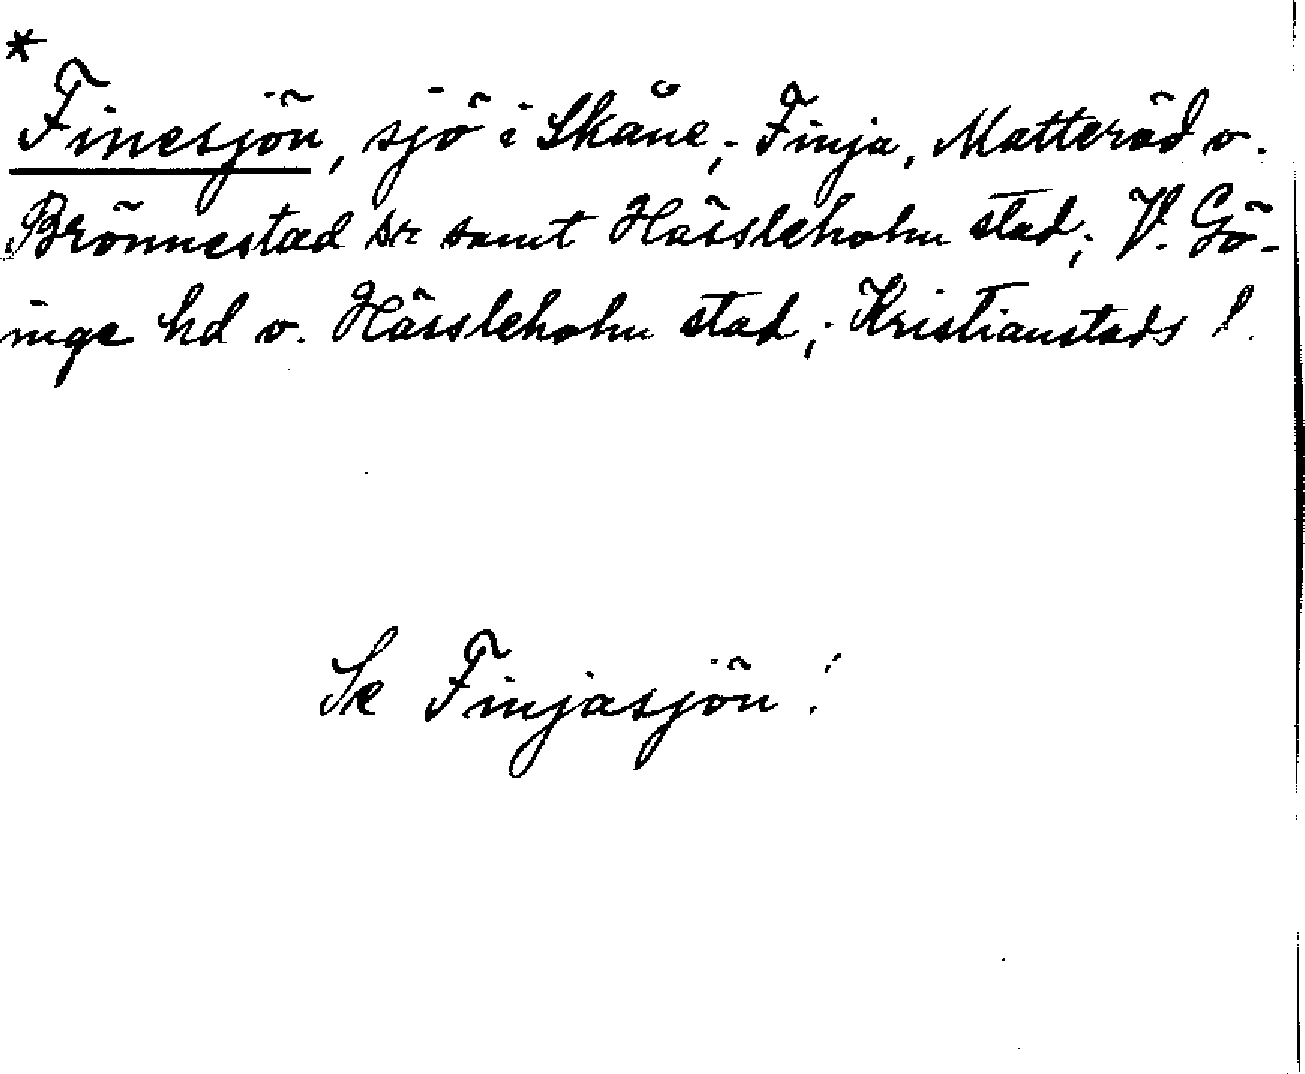 *
Finesjön, sjö i Skåne; Finja, Matteröd o.
Brönnestad sn samt Hässleholm stad; V. Gö-
inge hd o. Hässleholm stad; Kristianstads l.
Se Finjasjön!